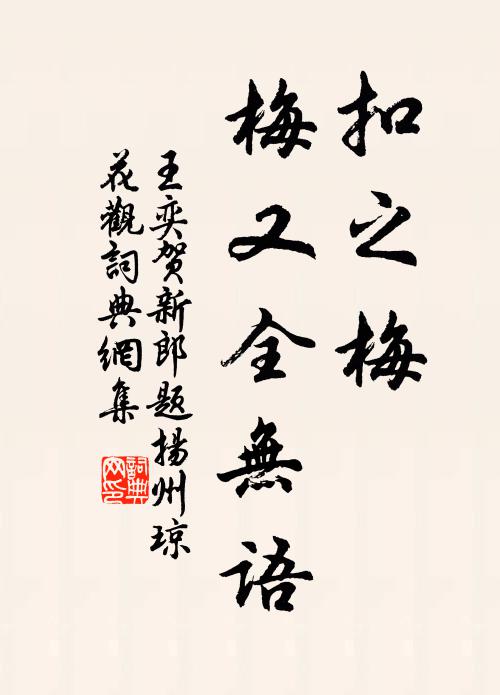 扣之梅
梅又全無語
王奕賀新郎題揚州琼
花觀詞典網集
詞典
网印